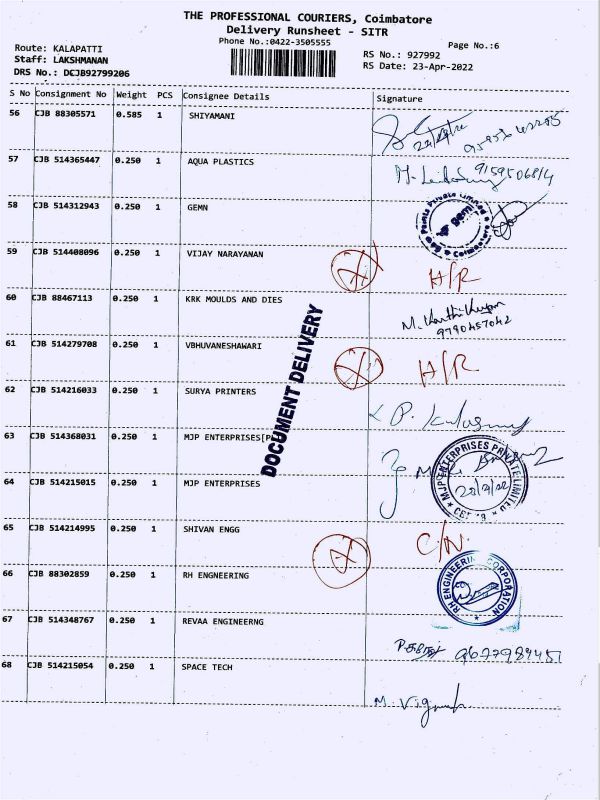 THE PROFESSIONAL COURIERS, Coimbatore
Delivery Runsheet - SITR
Phone No.:0422-3505555
Page No.:6
Route: KALAPATTI
Staff: LAKSHMANAN
DRS No.: DCJB92799206
RS No.: 927992
RS Date: 23-Apr-2022
S No Consignment No Weight PCS Consignee Details Signature
56 CJB 88305571 0.585 1 SHIYAMANI
57 CJB 514365447 0.250 1 AQUA PLASTICS
9159506814
58 CJB 514312943 0.250 1 GEMN
59 CJB 514408096 0.250 1 VIJAY NARAYANAN H/R
60 CJB 88467113 0.250 1 KRK MOULDS AND DIES
9790457042
61 CJB 514279708 0.250 1 VBHUVANESHAWARI H/R
62 CJB 514216033 0.250 1 SURYA PRINTERS
63 CJB 514368031 0.250 1 MJP ENTERPRISES[P
64 CJB 514215015 0.250 1 MJP ENTERPRISES
MJP ENTERPRISES PRIVATE LIMITED
65 CJB 514214995 0.250 1 SHIVAN ENGG C/N
66 CJB 88302859 0.250 1 RH ENGNEERING
RH ENGINEERING CORPORATION
67 CJB 514348767 0.250 1 REVAA ENGINEERNG
68 CJB 514215054 0.250 1 SPACE TECH
M. Vignesh
DOCUMENT DELIVERY